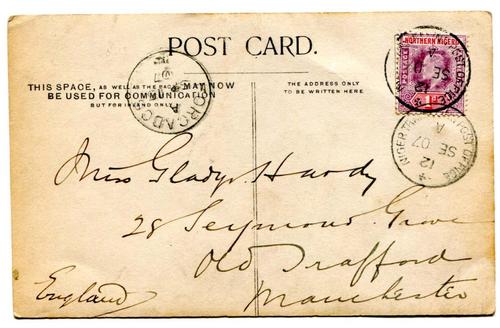 POST CARD.
THIS SPACE, AS WELL AS THE BACK, MAY NOW
BE USED FOR COMMUNICATION
BUT FOR INLAND ONLY.
THE ADDRESS ONLY
TO BE WRITTEN HERE.
NORTHERN NIGERIA
POSTAGE
1d
FORCADOS
A
07
POST OFFICE
A
SE
12
NIGER POST OFFICE
A
SE 07
12
Miss Gladys Hardy
28 Seymour Grove
Old Trafford
Manchester
England